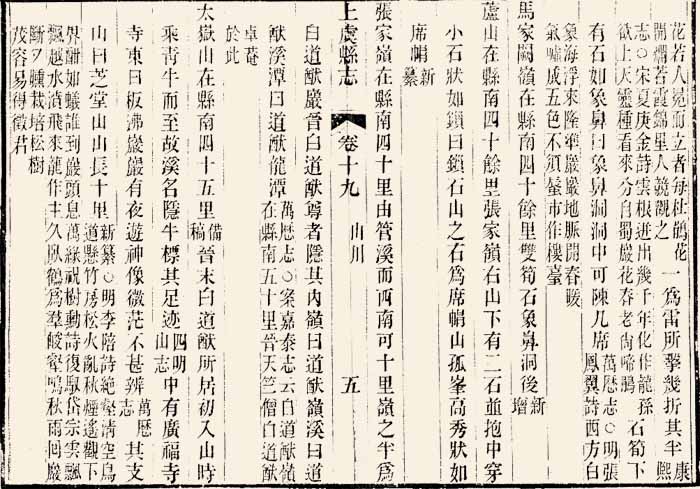 花若人冕而立者每杜鵑花一爲雷所擊幾折其半康熙
開爛若霞錦里人競觀之
志○宋夏庚金詩雲根迸出幾千年化作龍孫石筍下
欲上天靈種看來分自蜀巖花春老尙啼鵑
有石如象鼻曰象鼻洞洞中可陳几席萬厯志○明張
鳳翼詩西方白
象海浮來隆準巖巖地脈開春暖
氣噓成五色不須蜃市作樓臺
馬家闕嶺在縣南四十餘里雙筍石象鼻洞後新增
蘆山在縣南四十餘里張家嶺右山下有二石並抱中穿
小石狀如鎖曰鎖石山之石爲席帽山孤峯高秀狀如
席帽新纂
張家嶺在縣南四十里由管溪而西南可十里嶺之半爲
上虞縣志 卷十九 山川 五
曰道猷巖晉白道猷尊者隱其內嶺曰道猷嶺溪曰道
猷溪潭曰道猷龍潭萬厯志○案嘉泰志云白道猷嶺
在縣南五十里晉天竺僧白道猷
卓菴
於此
太嶽山在縣南四十五里備稿晉末白道猷所居初入山時
乘靑牛而至故溪名隱牛標其足迹四明山志中有廣福寺
寺東曰板沸巖巖有夜遊神像微茫不甚辨萬厯志其支
山曰芝堂山山長十里新纂○明李賠詩絶壑淸空鳥
道懸竹房松火亂秋煙遙觀下
界酣如蟻誰到巖頭息萬緣祝樹動詩復馭岱宗雲飄
飄越水濆飛來龍作主久臥鶴爲羣峻壑鳴秋雨回巖
斷夕曛栽培松樹
茂容易得徵君